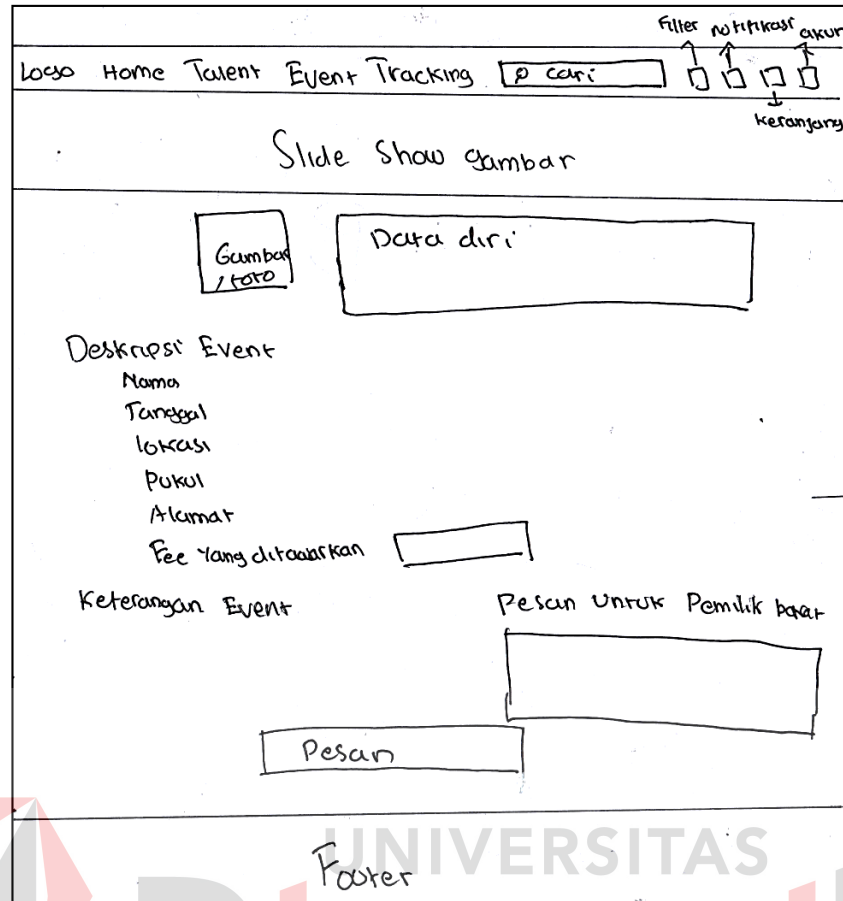 Filter notifikasi akun
Logo Home Talent Event Tracking cari
keranjang
Slide Show gambar
Gambar
/ foto
Data diri
Deskripsi Event
Nama
Tanggal
lokasi
Pukul
Alamat
Fee Yang ditawarkan
Keterangan Event
Pesan Untuk Pemilik bakat
Pesan
Footer
UNIVERSITAS